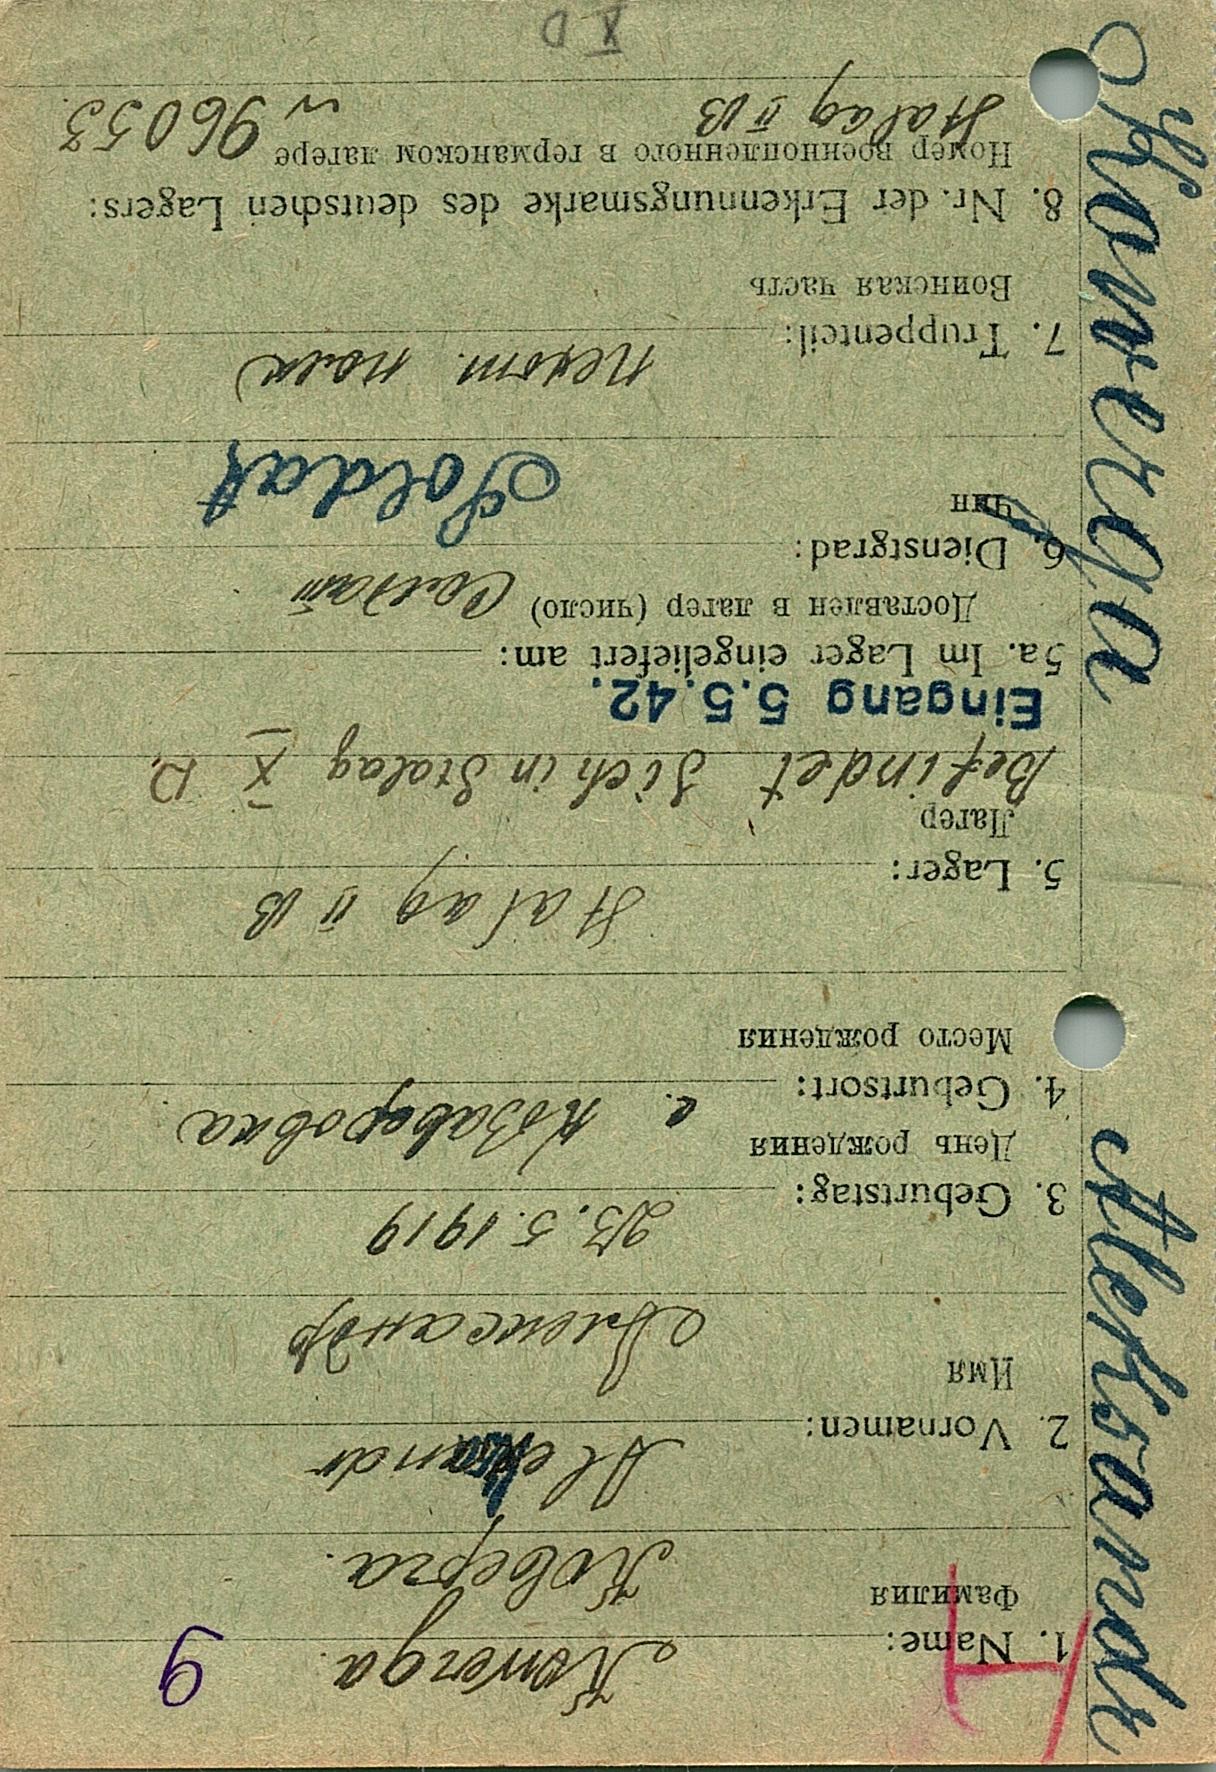 9
1. Name: Kowerga.
Фамилия Коверга.
2. Vornamen: Alexandr
Имя Александр
3. Geburtstag: 23.5.1919
День рождения
4. Geburtsort: с.
Место рождения
5. Lager: Stalag II B
Лагер
Befindet sich in Stalag X D.
Eingang 5.5.42.
5a. Im Lager eingeliefert am:
Доставлен в лагер (число) Солдат
6. Dienstgrad: Soldat
Чин
7. Truppenteil: пехот. полк
Воинская часть
8. Nr. der Erkennungsmarke des deutschen Lagers:
Номер военнопленного в германском лагере
Stalag II B
N 96053.
X D
Kowerga
Aleksandr